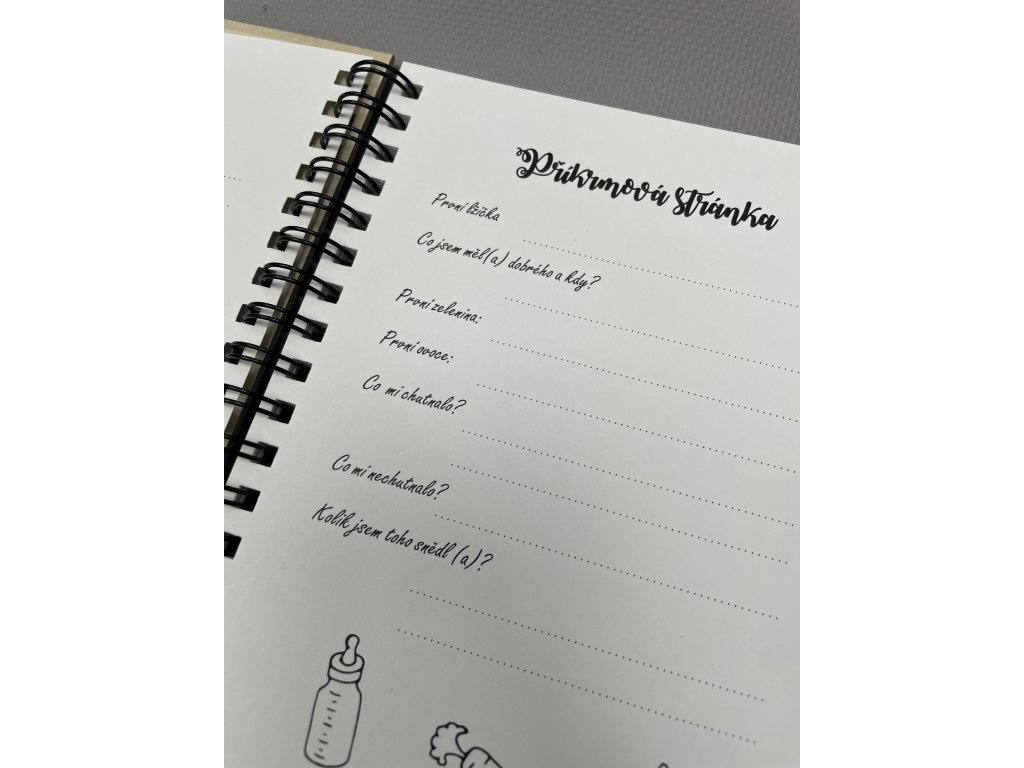 Příkrmová stránka
První lžička
Co jsem měl(a) dobrého a kdy?
První zelenina:
První ovoce:
Co mi chutnalo?
Co mi nechutnalo?
Kolik jsem toho snědl (a)?